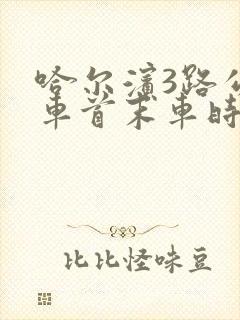 哈尔滨3路公
车首末车时
比比怪味豆